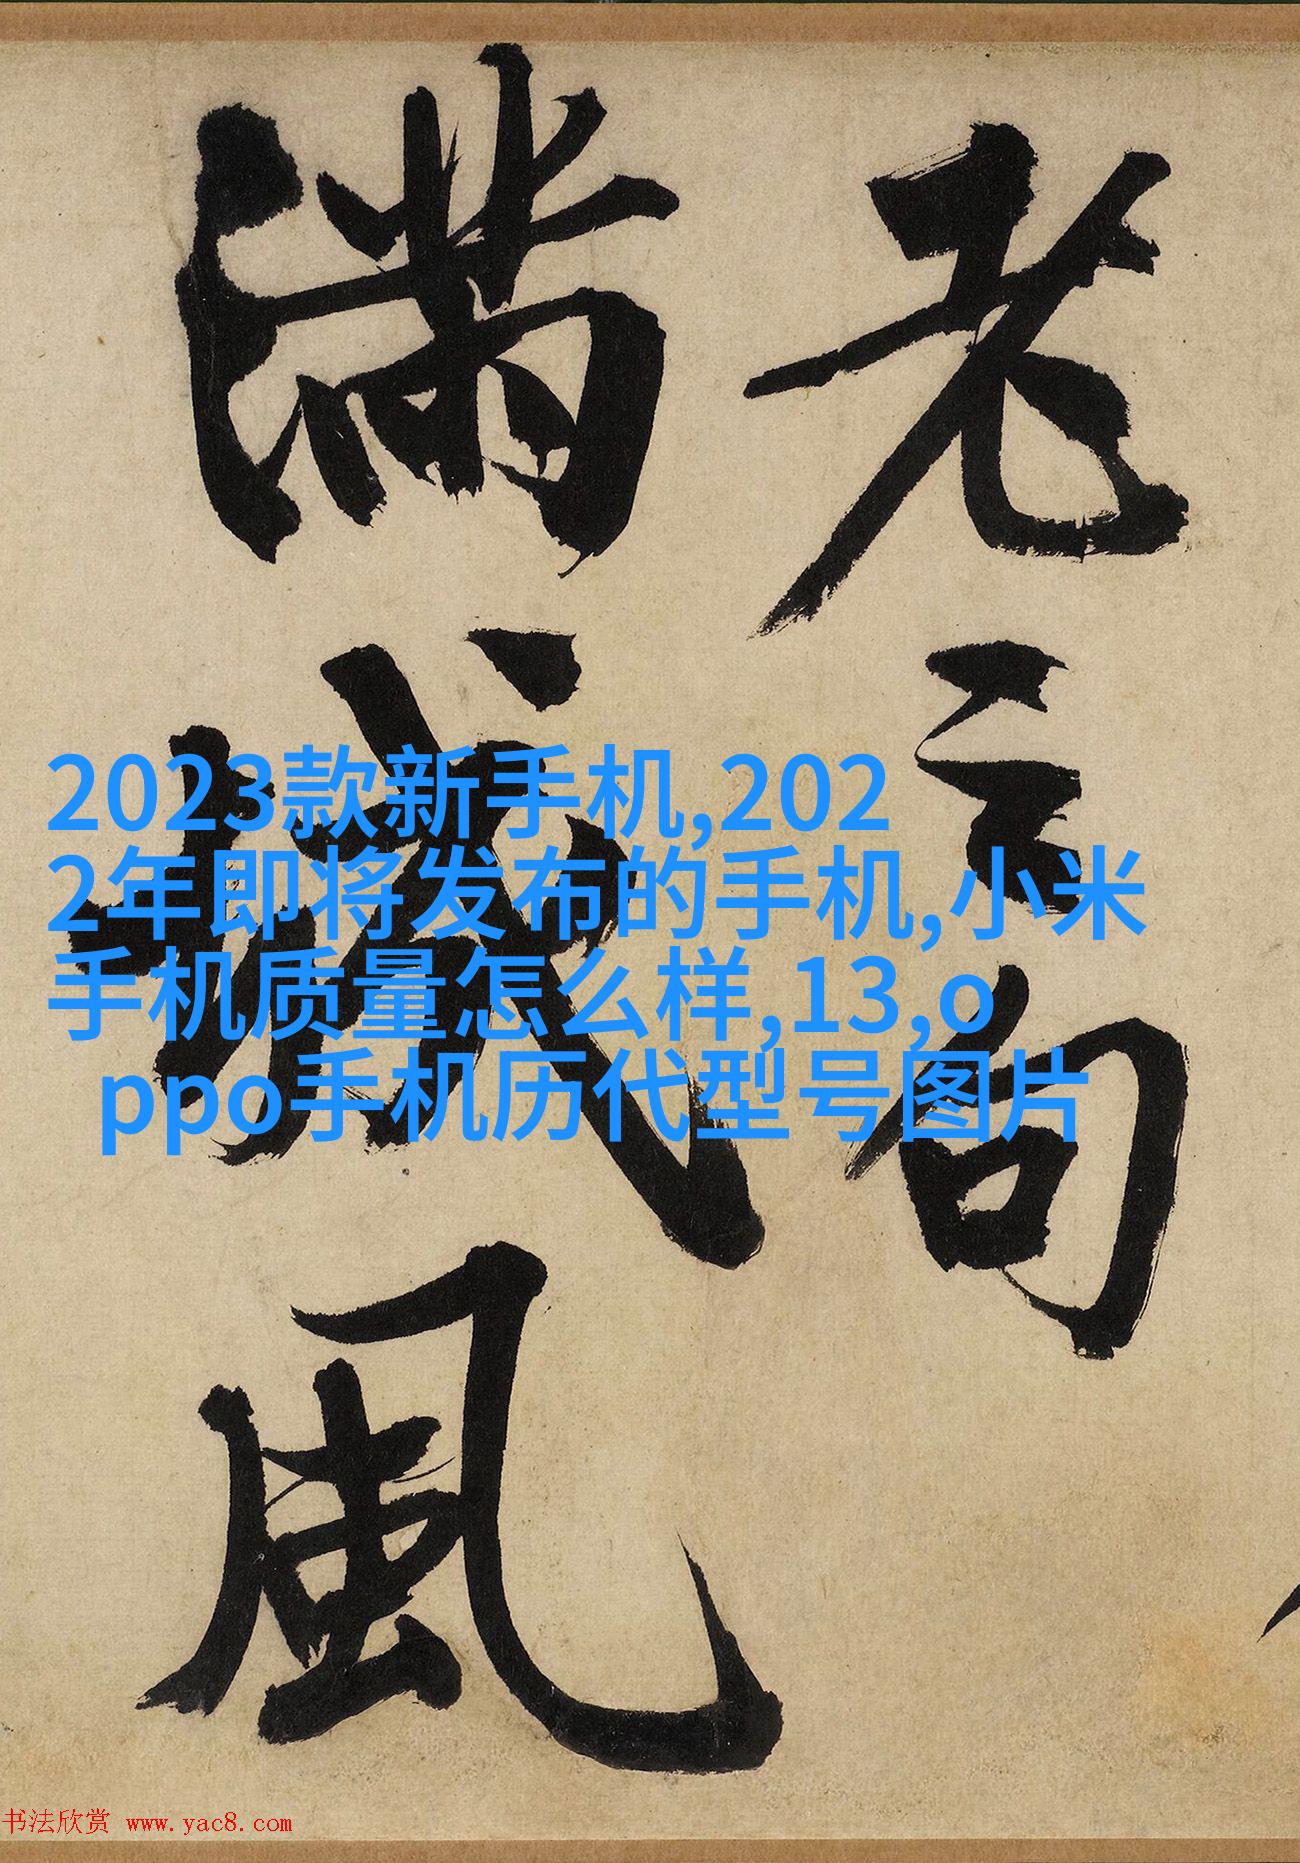 老
句
滿城風
2023款新手机,202
2年即将发布的手机,小米
手机质量怎么样,13,o
ppo手机历代型号图片
书法欣赏 www.yac8.com